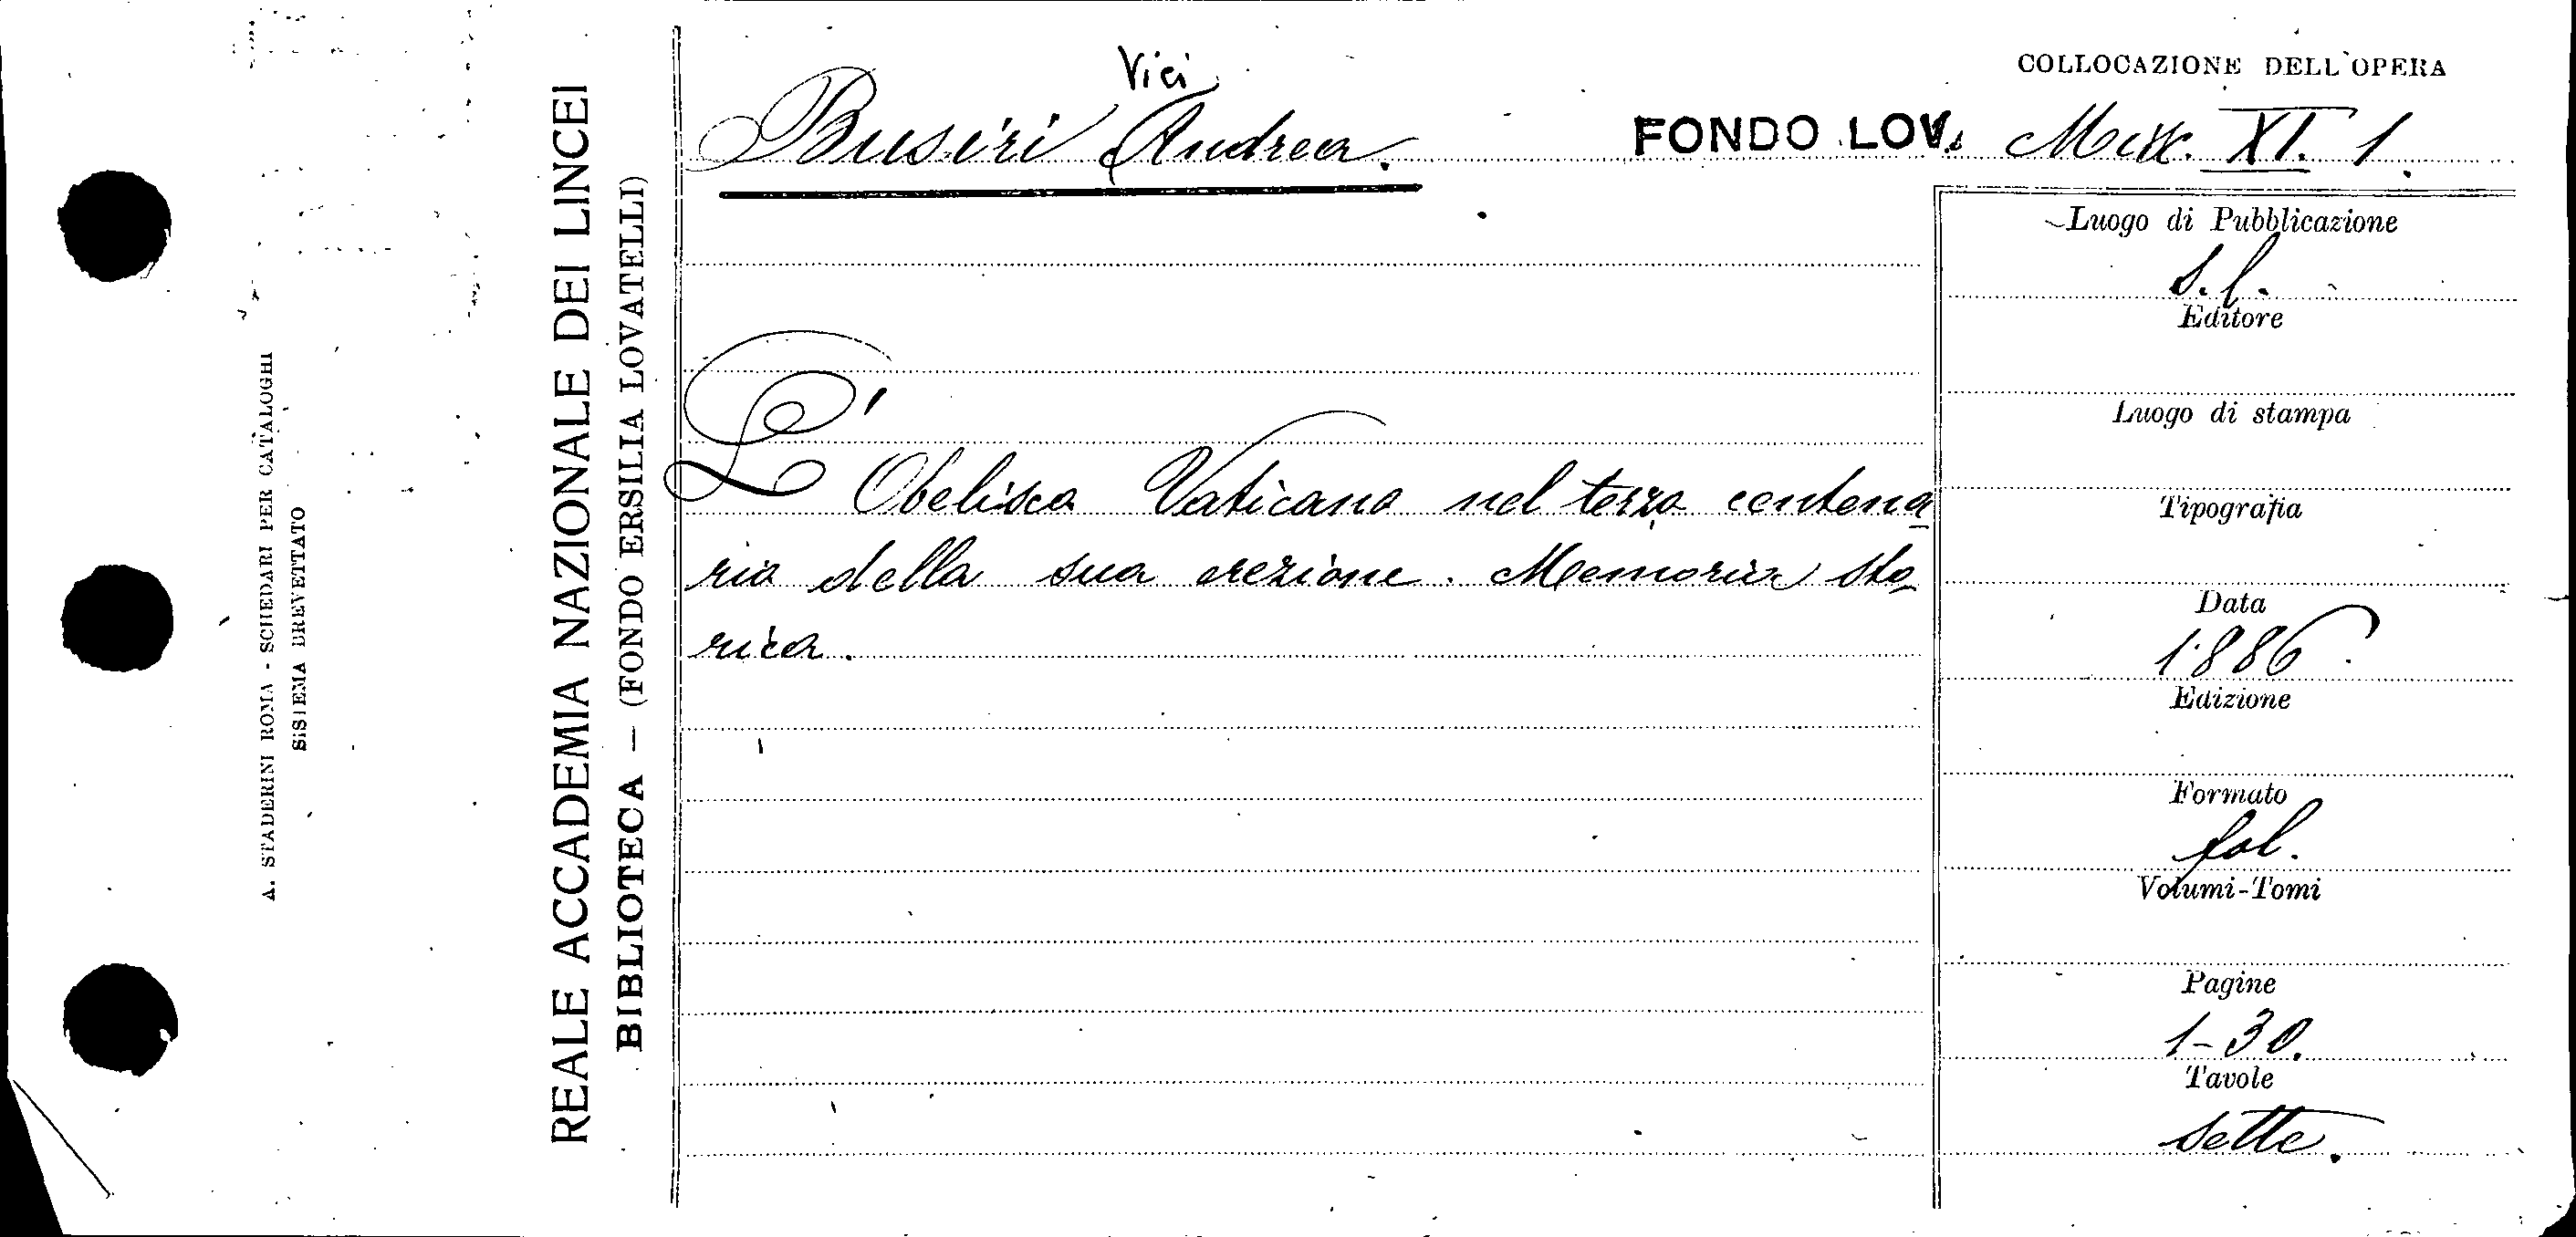 A. STADERINI ROMA - SCHEDARI PER CATALOGHI
SISTEMA BREVETTATO
REALE ACCADEMIA NAZIONALE DEI LINCEI
BIBLIOTECA — (FONDO ERSILIA LOVATELLI)
Vici
Busiri Andrea.
FONDO LOV.
COLLOCAZIONE DELL'OPERA
XI. 1.
L'Obelisco Vaticano nel terzo centena
rio della sua erezione. Memoria sto
rica.
Luogo di Pubblicazione
S.l.
Editore
Luogo di stampa
Tipografia
Data
1886.
Edizione
Formato
fol.
Volumi-Tomi
Pagine
1-30.
Tavole
sette.